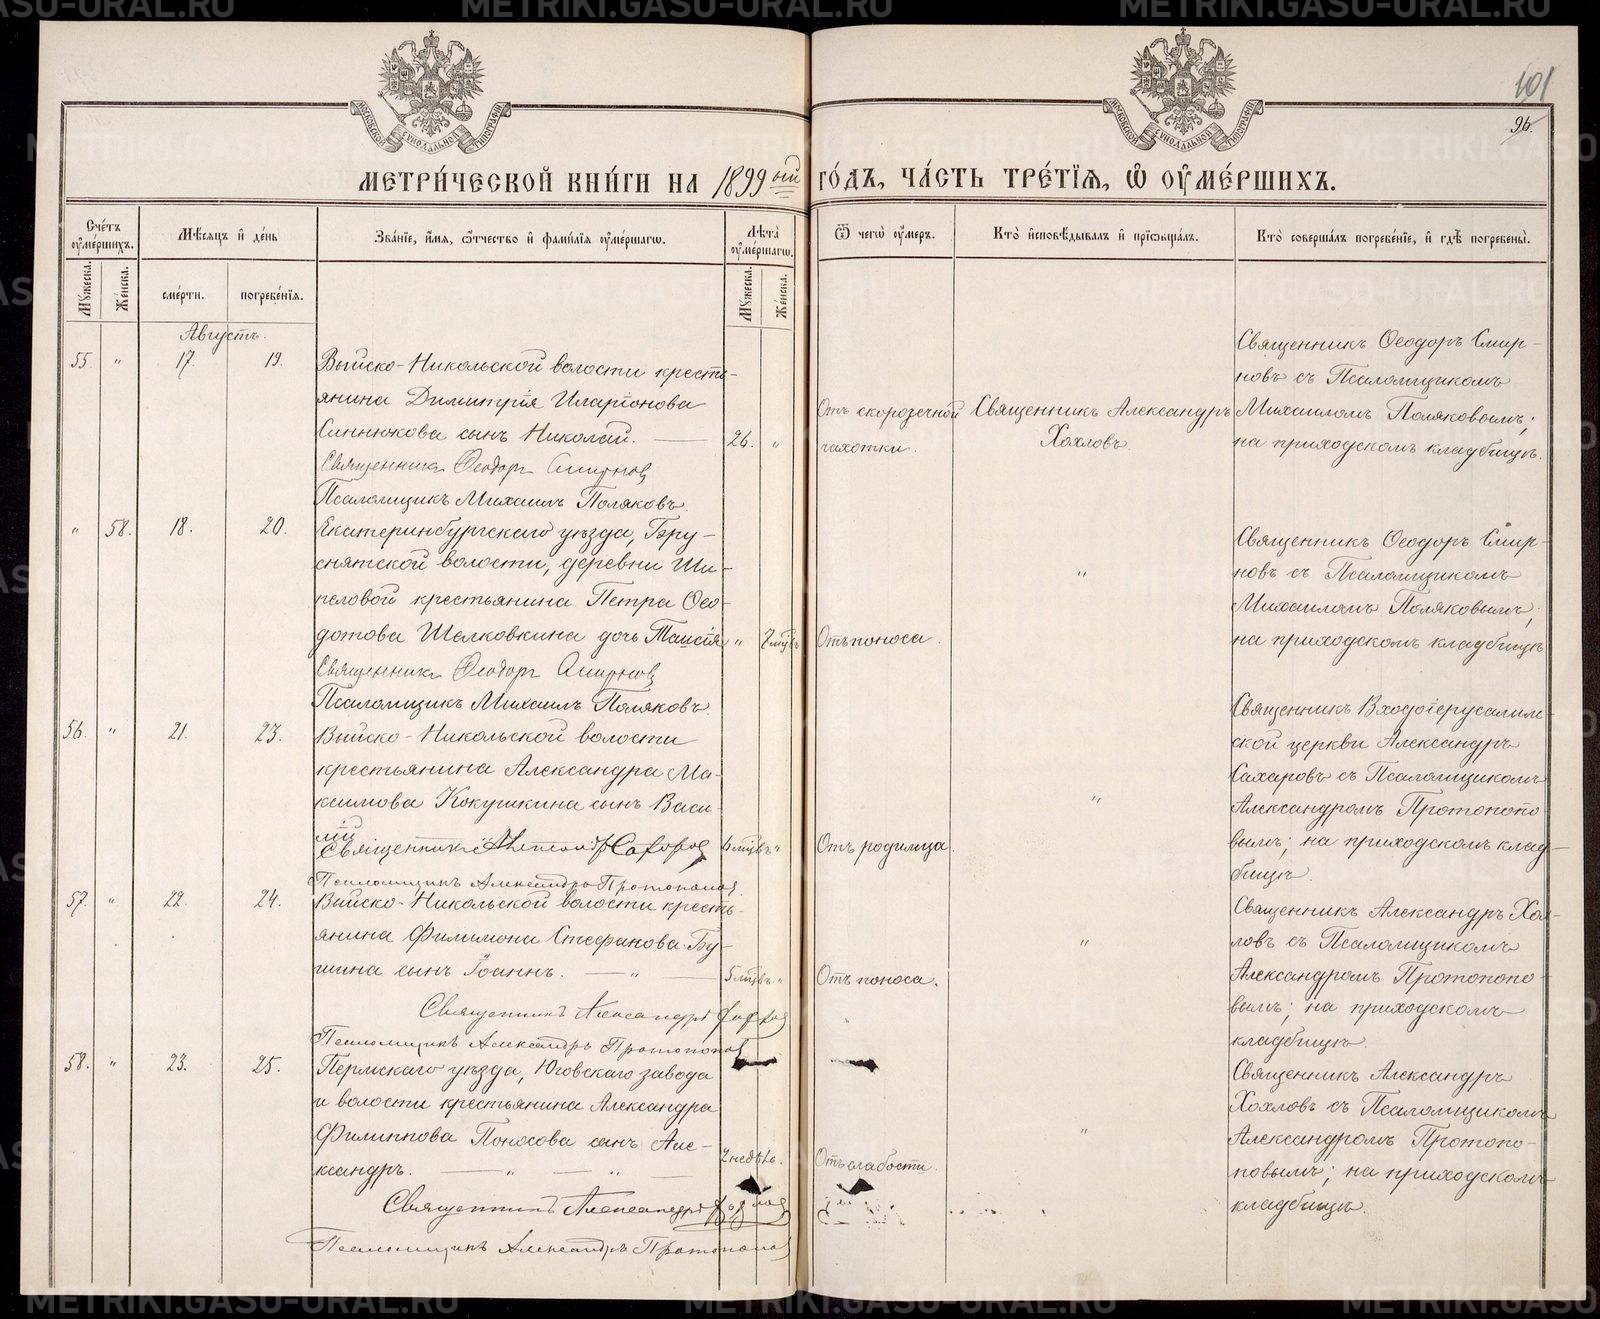 METRIKI.GASO-URAL.RU
101
96.
МОСКОВСКОЙ СѴНОДАЛЬНОЙ ТИПОГРАФІИ
МОСКОВСКОЙ СѴНОДАЛЬНОЙ ТИПОГРАФІИ
МЕТРИ́ЧЕСКОЙ КНИ́ГИ НА 1899ый ГО́ДЪ, ЧА́СТЬ ТРЕ́ТІЯ, Ѡ ОУ҆МЕ́РШИХЪ.
Сче́тъ оу҆ме́ршихъ.
Мѣ́сяцъ и҆ де́нь
Зва́нїе, и҆́мя, ѻ҆́тчество и҆ фами́лїя оу҆ме́ршагѡ.
Лѣ́та оу҆ме́ршагѡ.
Ѿ чегѡ̀ оу҆́меръ.
Кто̀ и҆сповѣ́дывалъ и҆ прїѡбща́лъ.
Кто̀ соверша́лъ погребе́нїе, и҆ гдѣ̀ погребены̀.
Мꙋ́жеска.
Же́нска.
сме́рти.
погребе́нїя.
Мꙋ́жеска.
Же́нска.
Августъ.
55. " 17. 19.
Выйско-Никольской волости кресть-
янина Димитрія Иларіонова
Синюкова сынъ Николай. — 26. "
Священникъ Ѳеодоръ Смирновъ
Псаломщикъ Михаилъ Поляковъ.
Отъ скоротечной
чахотки.
Священникъ Александръ
Хохловъ.
Священникъ Ѳеодоръ Смир-
новъ съ Псаломщикомъ
Михаиломъ Поляковымъ;
на приходскомъ кладбищѣ.
" 58. 18. 20.
Екатеринбургскаго уѣзда, Бру-
снятской волости, деревни Ши-
пеловой крестьянина Петра Ѳео-
дотова Шелковкина дочь Таисія " 7 мцвъ
Священникъ Ѳеодоръ Смирновъ
Псаломщикъ Михаилъ Поляковъ.
Отъ поноса.
"
Священникъ Ѳеодоръ Смир-
новъ съ Псаломщикомъ
Михаиломъ Поляковымъ;
на приходскомъ кладбищѣ
56. " 21. 23.
Выйско-Никольской волости
крестьянина Александра Ма-
ксимова Кокушкина сынъ Васи-
лій
Священникъ Александръ Сахаровъ 6 мцвъ "
Псаломщикъ Александръ Протопоповъ
Отъ родимца.
"
Священникъ Входоіерусалим-
ской церкви Александръ
Сахаровъ съ Псаломщикомъ
Александромъ Протопопо-
вымъ; на приходскомъ клад-
бищѣ.
57. " 22. 24.
Выйско-Никольской волости кресть-
янина Филимона Стефанова Бу-
шина сынъ Іоаннъ. — " — 5 мцвъ "
Священникъ Александръ Хохловъ
Псаломщикъ Александръ Протопоповъ
Отъ поноса.
"
Священникъ Александръ Хох-
ловъ съ Псаломщикомъ
Александромъ Протопопо-
вымъ; на приходскомъ
кладбищѣ.
58. " 23. 25.
Пермскаго уѣзда, Юговскаго завода
и волости крестьянина Александра
Филиппова Поносова сынъ Але-
ксандръ. — " — " — 2 недѣль.
Священникъ Александръ Хохловъ
Псаломщикъ Александръ Протопоповъ
Отъ слабости.
"
Священникъ Александръ
Хохловъ съ Псаломщикомъ
Александромъ Протопо-
повымъ; на приходскомъ
кладбищѣ.